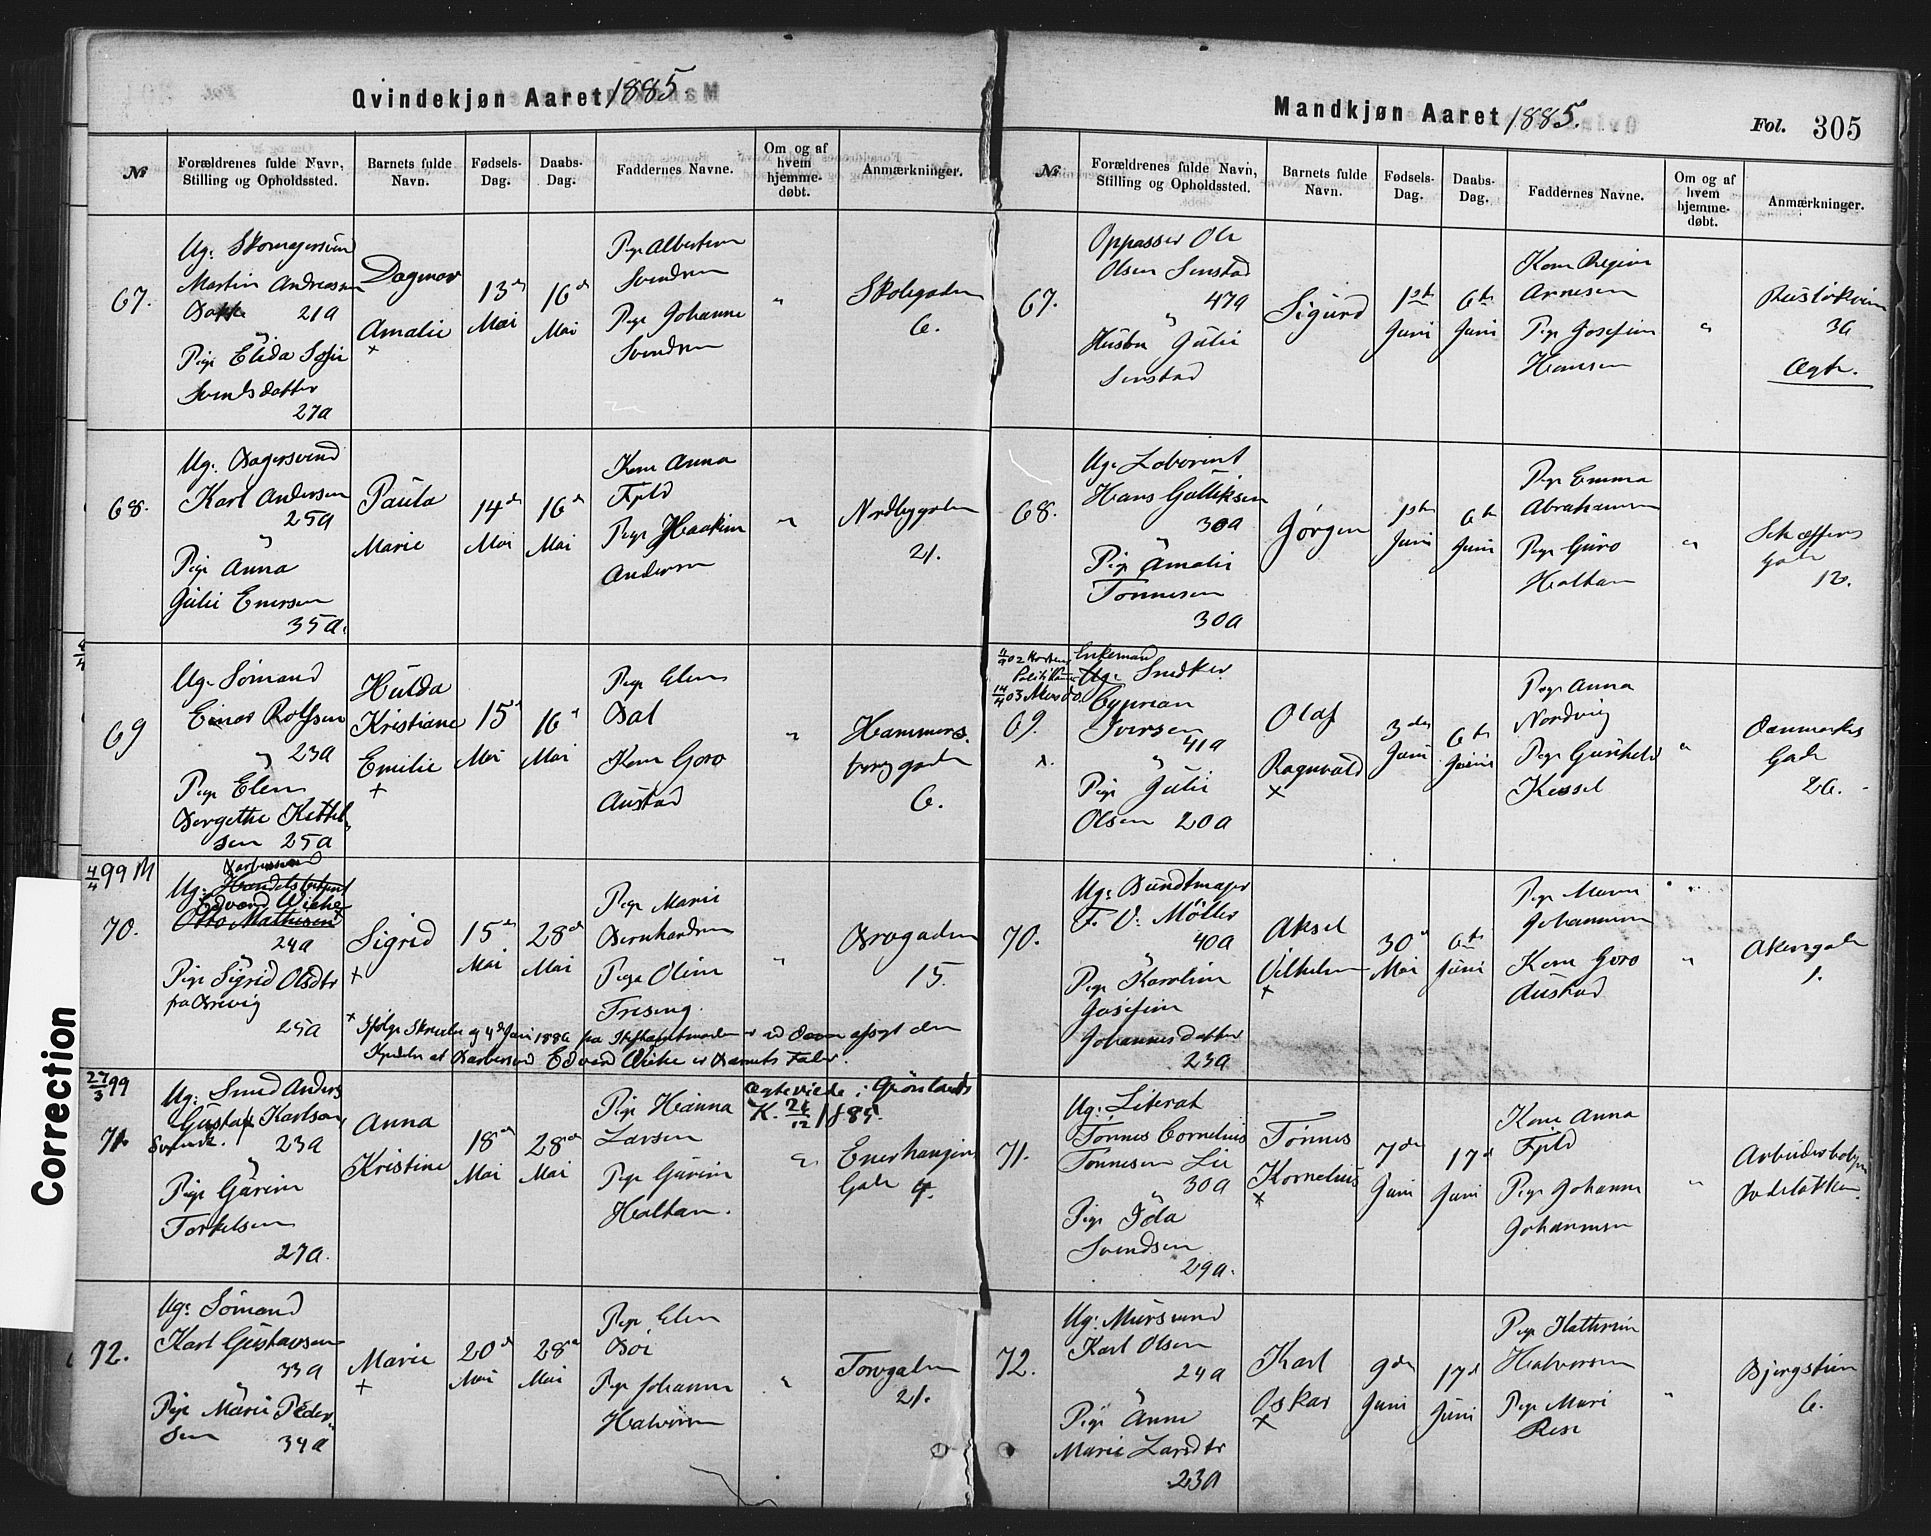 Qvindekjøn Aaret 1885
№
Forældrenes fulde Navn,
Stilling og Opholdssted.
Barnets fulde
Navn.
Fødsels-
Dag.
Daabs-
Dag.
Faddernes Navne.
Om og af
hvem
hjemme-
døbt.
Anmærkninger.
67.
Ug. Skomagersvend
Martin Andreassen
21a
Pige Elida Sofie
Svendsdatter
27a
Dagmar
Amalie
×
13de
Mai
16de
Mai
Pige Albertine
Svendsen
Pige Johanne
Svendsen
"
Skolegaden
6.
68.
Ug. Bagersvend
Karl Andersen
25a
"
Pige Anna
Julie Enersen
35a.
Paula
Marie
14de
Mai
16de
Mai
Kone Anna
Fjeld
Pige Haakine
Andersen
"
Nordbygaden
21.
69
Ug. Sømand
Einar Rolfsen
23a
"
Pige Elen
Bergethe Kittel-
sen 25a
Hulda
Kristiane
Emilie
×
15de
Mai
16de
Mai
Pige Elen
Dal
Kone Goro
Austad
"
Hammers-
borggaden
6.
4/4 99 M
70.
Barbersvend
Ug. Handelsbetjent
Edvard Wiche
Otto Mathisen
24a
"
Pige Sigrid Olsdtr
fra Brevig
25a
Sigrid
×
15de
Mai
28de
Mai
Pige Marie
Bernhardsen
Pige Oline
Fresing
"
Brogaden
15.
× Ifølge Skrivelse af 4de Juni 1886 fra Stiftsamtmanden er ved Dom afsagt den
Kjendelse at Barbersvend Edvard Wiche er Barnets Fader.
27/3 99
71.
Ug. Smed Anders
Gustaf Karlson,
Svensk. 23a
"
Pige Gurine
Torkelsen
27a.
Anna
Kristine
18de
Mai
28de
Mai
Pige Hanna
Larsen
Pige Gurine
Holtan.
Ægteviede i Grønlands
K. 26/12 1885.
"
Enerhaugen
Gade 4.
72.
Ug. Sømand
Karl Gustavsen
33a
"
Pige Marie Peder-
sen 34a
Marie
×
20de
Mai
28de
Mai
Pige Elen
Boi
Pige Johanne
Halvorsen
"
Torvgaden
21.
Mandkjøn Aaret 1885.
Fol. 305
№
Forældrenes fulde Navn,
Stilling og Opholdssted.
Barnets fulde
Navn.
Fødsels-
Dag.
Daabs-
Dag.
Faddernes Navne.
Om og af
hvem
hjemme-
døbt.
Anmærkninger.
67.
Oppasser Ole
Olsen Senstad
47a
"
Hustru Julie
Senstad
Sigurd
1ste
Juni
6te
Juni
Kone Regine
Arnesen
Pige Josefine
Hansen
"
Ruseløkveien
36
Ægte.
68.
Ug. Laborent
Hans Gulliksen
30a
"
Pige Amalie
Tønnesen
30a
Jørgen
1ste
Juni
6te
Juni
Pige Emma
Abrahamsen
Pige Guro
Holtan
"
Schæffers
gade
12.
4/9 02 Horten
Politikam
14/4 03 Akers do.
69.
×.
Enkemand
Ug. Snedker
Cyprian
Iversen
41a
"
Pige Julie
Olsen 20a
Olaf
Ragnvald
×
3die
Juni
6te
Juni
Pige Anna
Nordvig
Pige Gunhild
Kessel
"
Danmarks
Gade
26.
70.
Ug. Bundtmager
F. V. Møller
40a
"
Pige Karoline
Josefine
Johannesdatter
23a
Aksel
Vilhelm
×
30de
Mai
6te
Juni
Pige Maren
Johannesen
Kone Goro
Austad
"
Akersgade
1.
71.
Ug. Literat
Tønnes Cornelius
Tønnesen Lie
30a
"
Pige Ida
Svendsen
29a.
Tønnes
Kornelius
×
7de
Juni
17de
Juni
Kone Anna
Fjeld
Pige Johanne
Johannesen
"
Arbeiderbolig
Rodeløkken
72.
Ug. Mursvend
Karl Olsen
24a
"
Pige Anne
Marie Larsdtr
23a
Karl
Oskar
×
9de
Juni
17de
Juni
Pige Kathrine
Halvorsen
Pige Mari
Rose
"
Bjergstien
6.
Correction